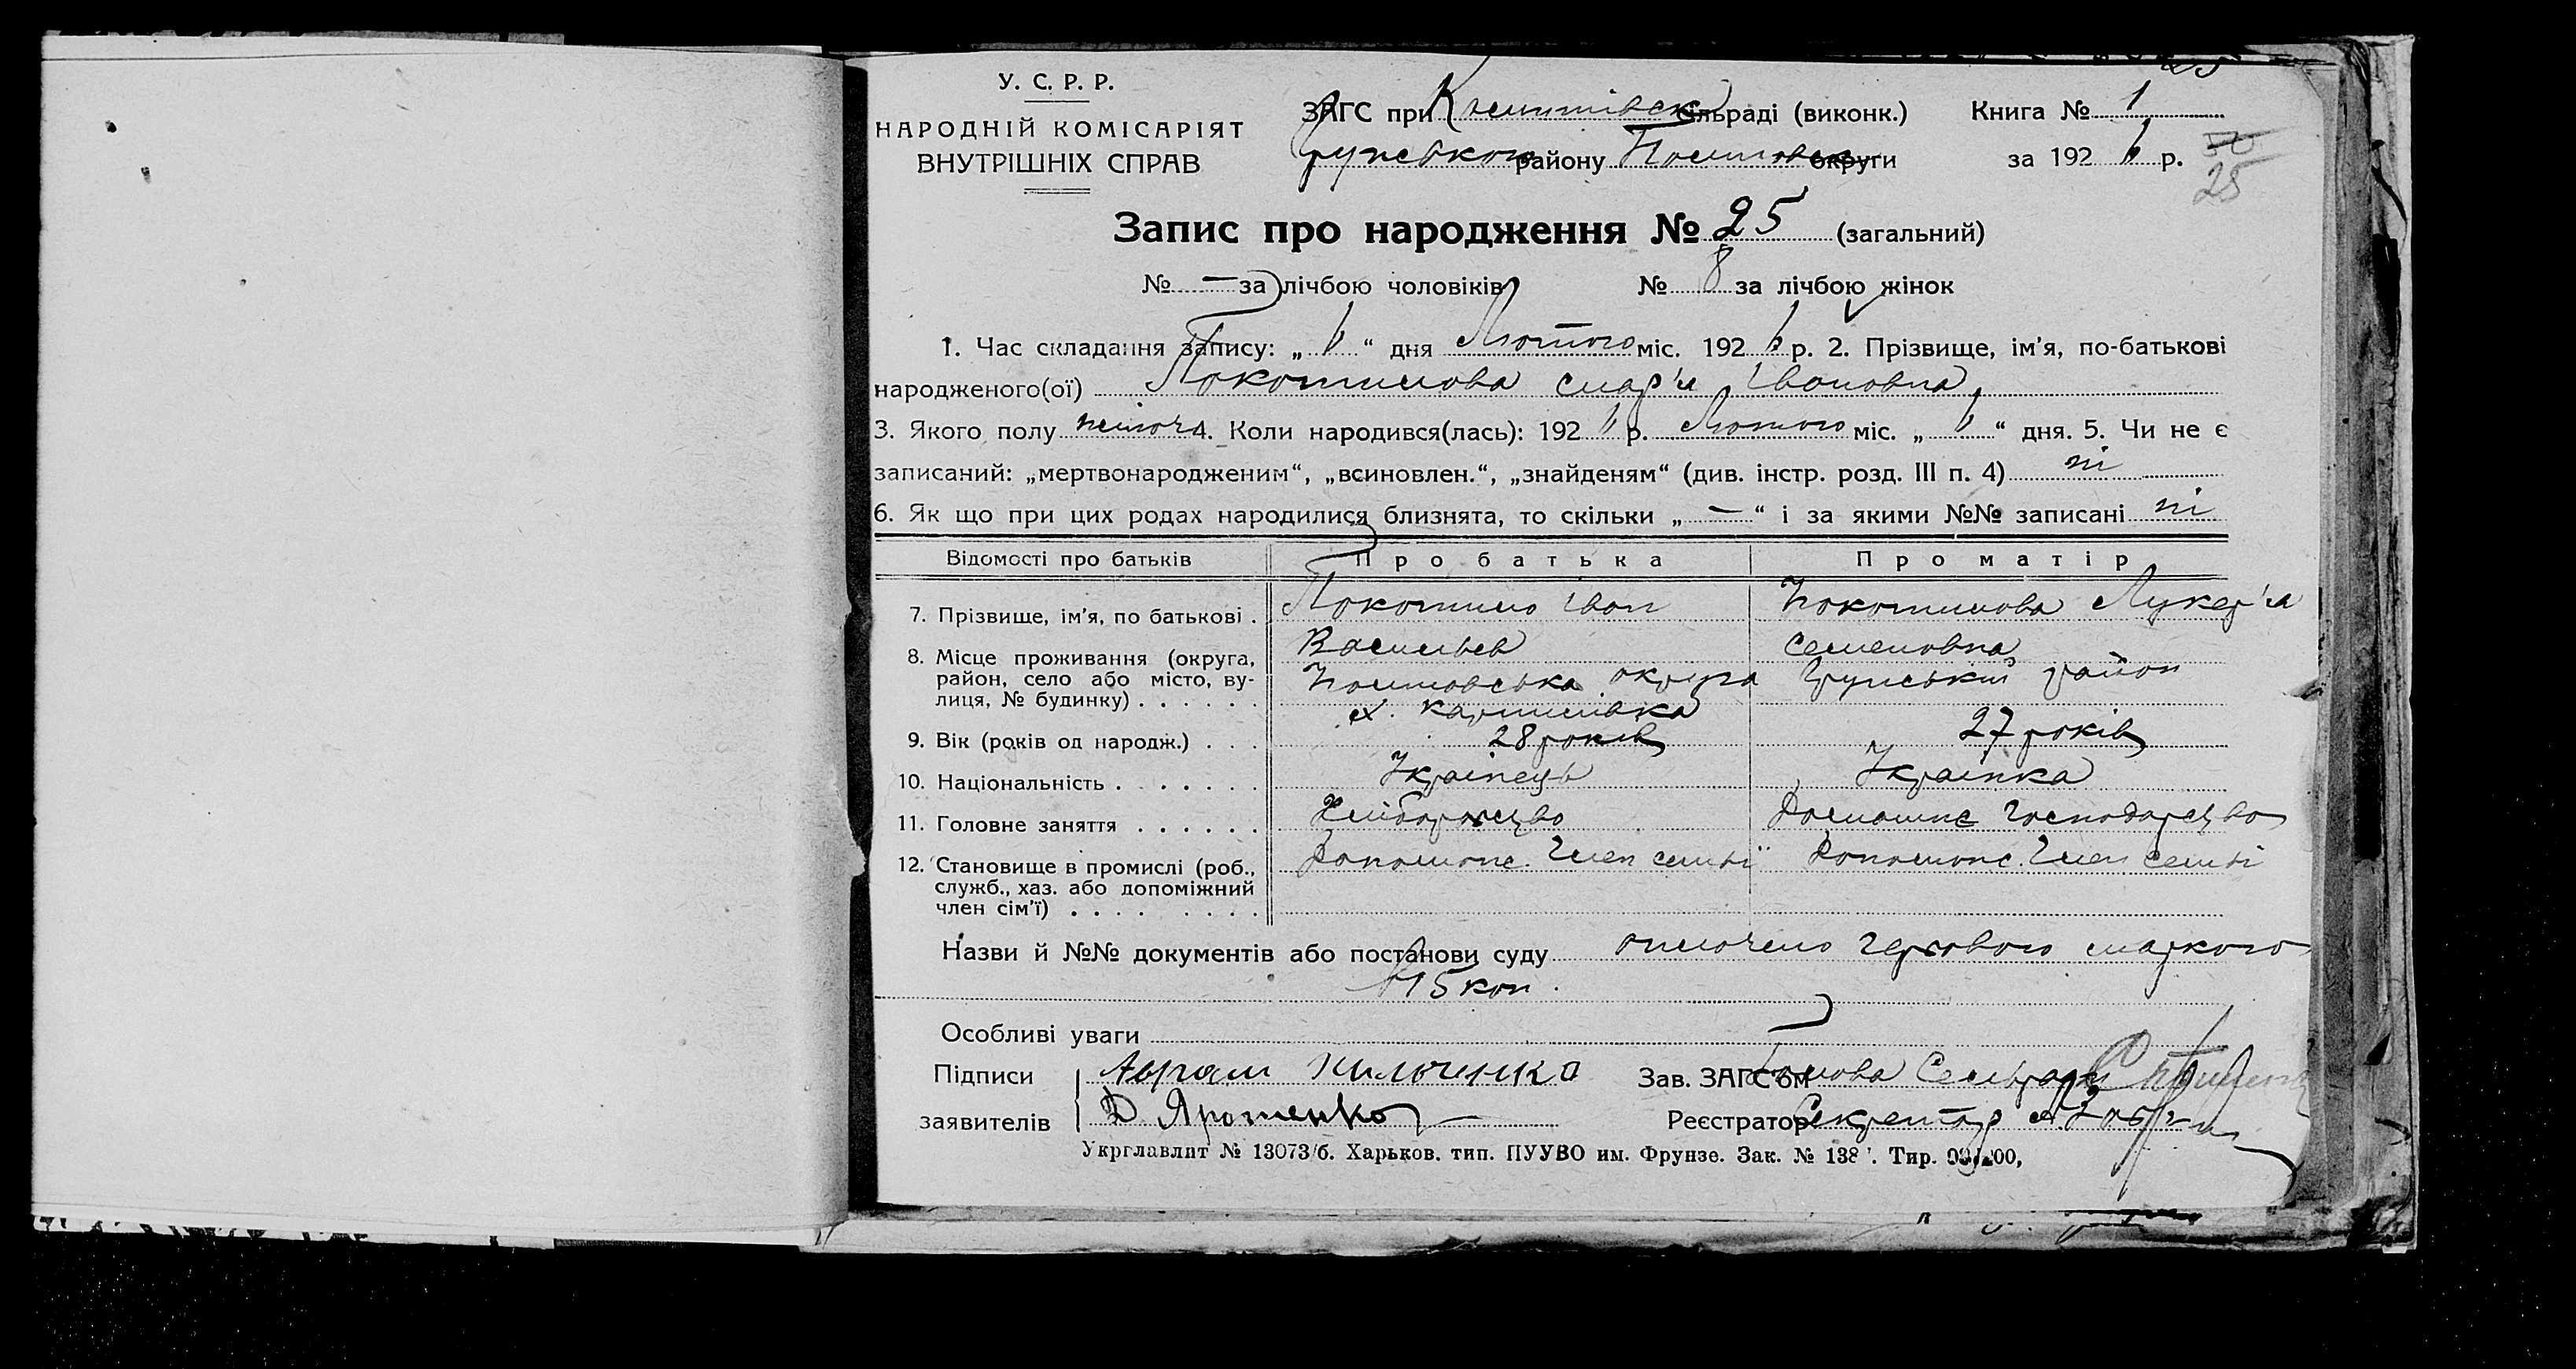 У. С. Р. Р.
НАРОДНІЙ КОМІСАРІЯТ
ВНУТРІШНІХ СПРАВ
ЗАГС при сільраді (виконк.) Книга № 1
Грунського району Полтавськ округи за 1926 р.
25
Запис про народження № 25 (загальний)
№ — за лічбою чоловіків № 8 за лічбою жінок
1. Час складання запису: „6“ дня Лютого міс. 1926 р. 2. Прізвище, ім’я, по-батькові
народженого(ої) Покотилова Мар'я Івановна
3. Якого полу жіноч 4. Коли народився(лась): 1926 р. Лютого міс. „6“ дня. 5. Чи не є
записаний: „мертвонародженим“, „всиновлен.“, „знайденям“ (див. інстр. розд. III п. 4) ні
6. Як що при цих родах народилися близнята, то скільки „—“ і за якими №№ записані ні
Відомості про батьків Про батька Про матір
7. Прізвище, ім’я, по батькові . Покотило Іван Васильев Покотилова Лукер'я Семеновна
8. Місце проживання (округа,
район, село або місто, ву-
лиця, № будинку) . . . . . . Полтавська округа Грунський район
х.
9. Вік (років од народж.) . . . 28 років 27 років
10. Національність . . . . . . . Українець Українка
11. Головне заняття . . . . . . Хліборобство Домашнє Господарство
12. Становище в промислі (роб.,
служб., хаз. або допоміжний
член сім’ї) . . . . . . . . Допомож. Член семьї Допомож. Член семьі
Назви й №№ документів або постанови суду оплочено гербового маркою
15 коп.
Особливі уваги
Підписи Аврам Кильченко Зав. ЗАГС’ом Голова Сельради
заявителів Д. Ярошенко Реєстратор Секретар
Укрглавлит № 13073/б. Харьков. тип. ПУУВО им. Фрунзе. Зак. № 138 . Тир. 00,